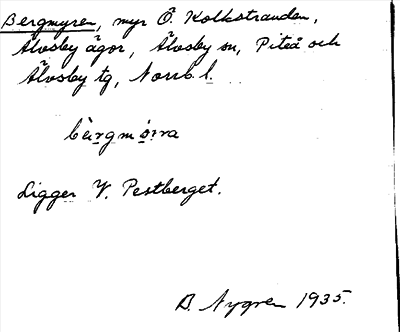 Bergmyren, myr Ö. Kolkstranden,
Älvsby ägor, Älvsby sn, Piteå och
Älvsby tg, Norrb. l.
Ligger V. Pestberget.
B. Nygren 1935.